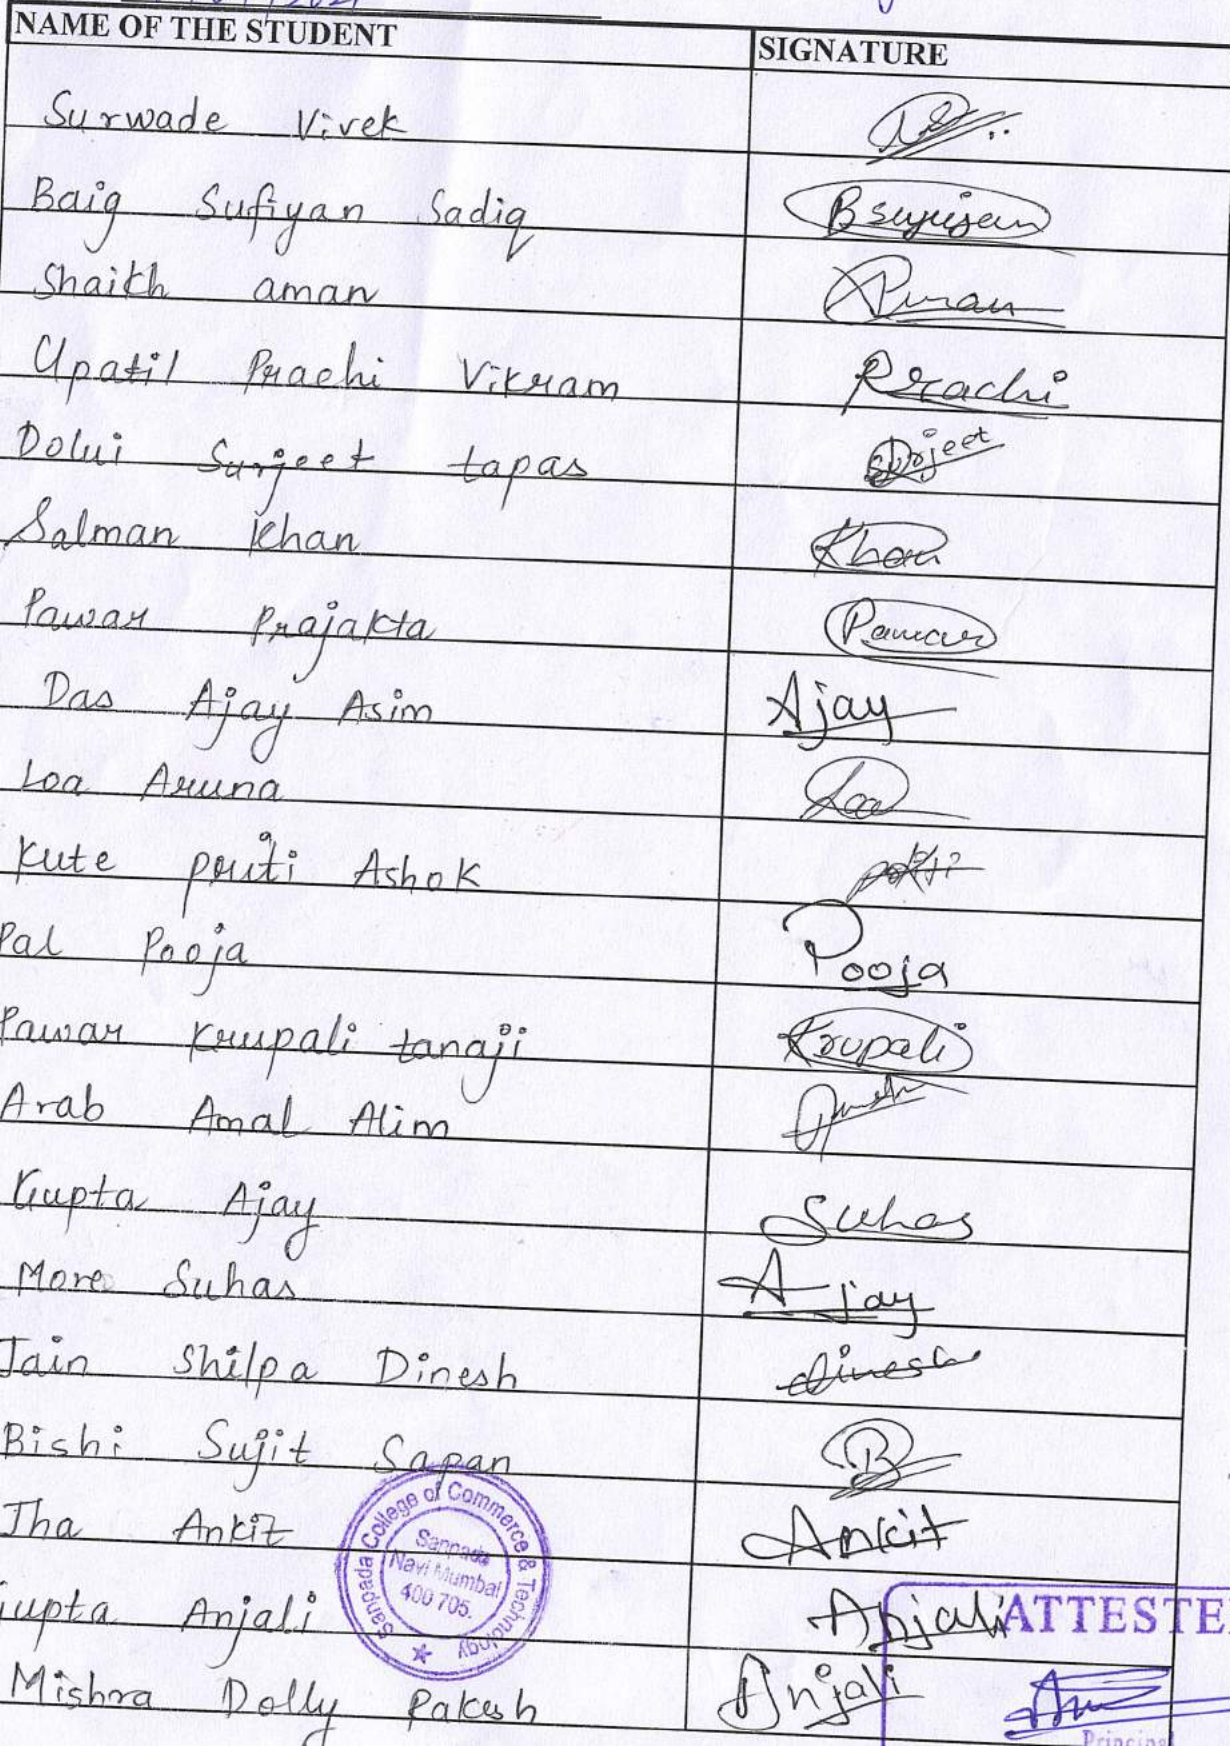 NAME OF THE STUDENT SIGNATURE
Surwade Vivek
Baig Sufiyan Sadiq Bsuyijan
Shaikh aman Aman
Upatil Prachi Vikram Prachi
Dolui Surjeet tapas Surjeet
Salman Khan Khan
Pawar Prajakta Pawar
Das Ajay Asim Ajay
Loa Aruna Loa
Kute priti Ashok
Pal Pooja Pooja
Pawar Krupali tanaji Krupali
Arab Amal Alim
Gupta Ajay Suhas
More Suhas Ajay
Jain Shilpa Dinesh Dinesh
Bishi Sujit Sapan B
Jha Ankit Ankit
Gupta Anjali Anjali
Mishra Dolly Rakesh Anjali
Sanpada College of Commerce & Technology
Sanpada
Navi Mumbai
400 705.
ATTESTE
Principal